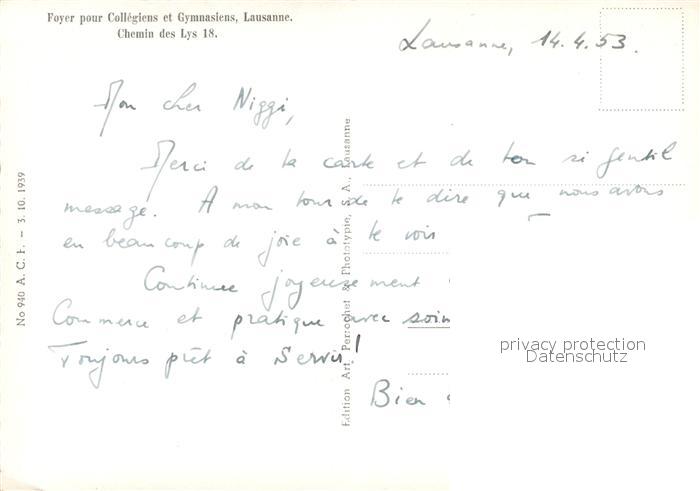 Foyer pour Collégiens et Gymnasiens, Lausanne.
Chemin des Lys 18.
Lausanne, 14.4.53.
Mon cher Niggi,
Merci de ta carte et de ton si gentil
message. A mon tour de te dire que nous avons
eu beaucoup de joie à te voir
Continue joyeusement
Commerce et pratique avec soin
Toujours prêt à Servir!
Bien
No 940 A. C. F. – 3. 10. 1939
Edition Art. Perrochet & Phototypie, S. A., Lausanne
privacy protection
Datenschutz